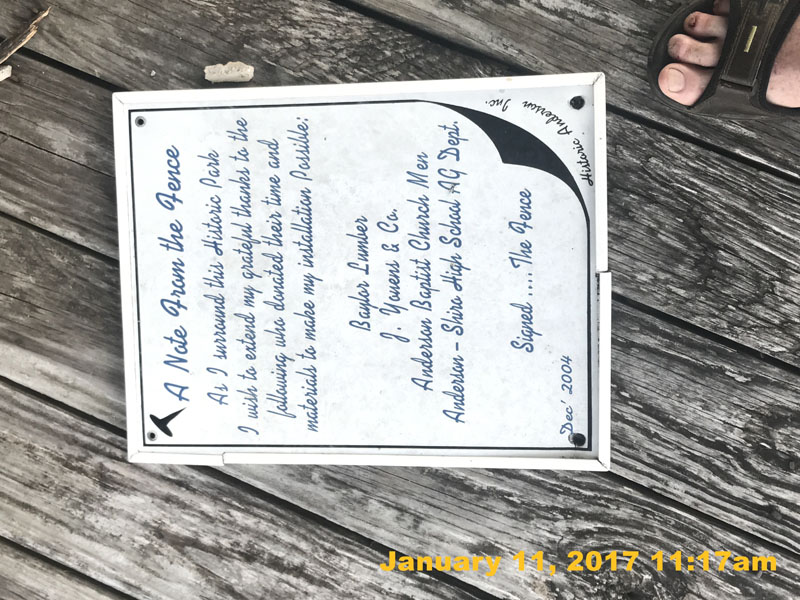 A Note From the Fence
As I surround this Historic Park
I wish to extend my grateful thanks to the
following who donated their time and
materials to make my installation Possible;
Baylor Lumber
J. Youens & Co.
Anderson Baptist Church Men
Anderson - Shiro High School AG Dept.
Signed ..... The Fence
Dec' 2004
Historic Anderson Inc.
January 11, 2017 11:17am